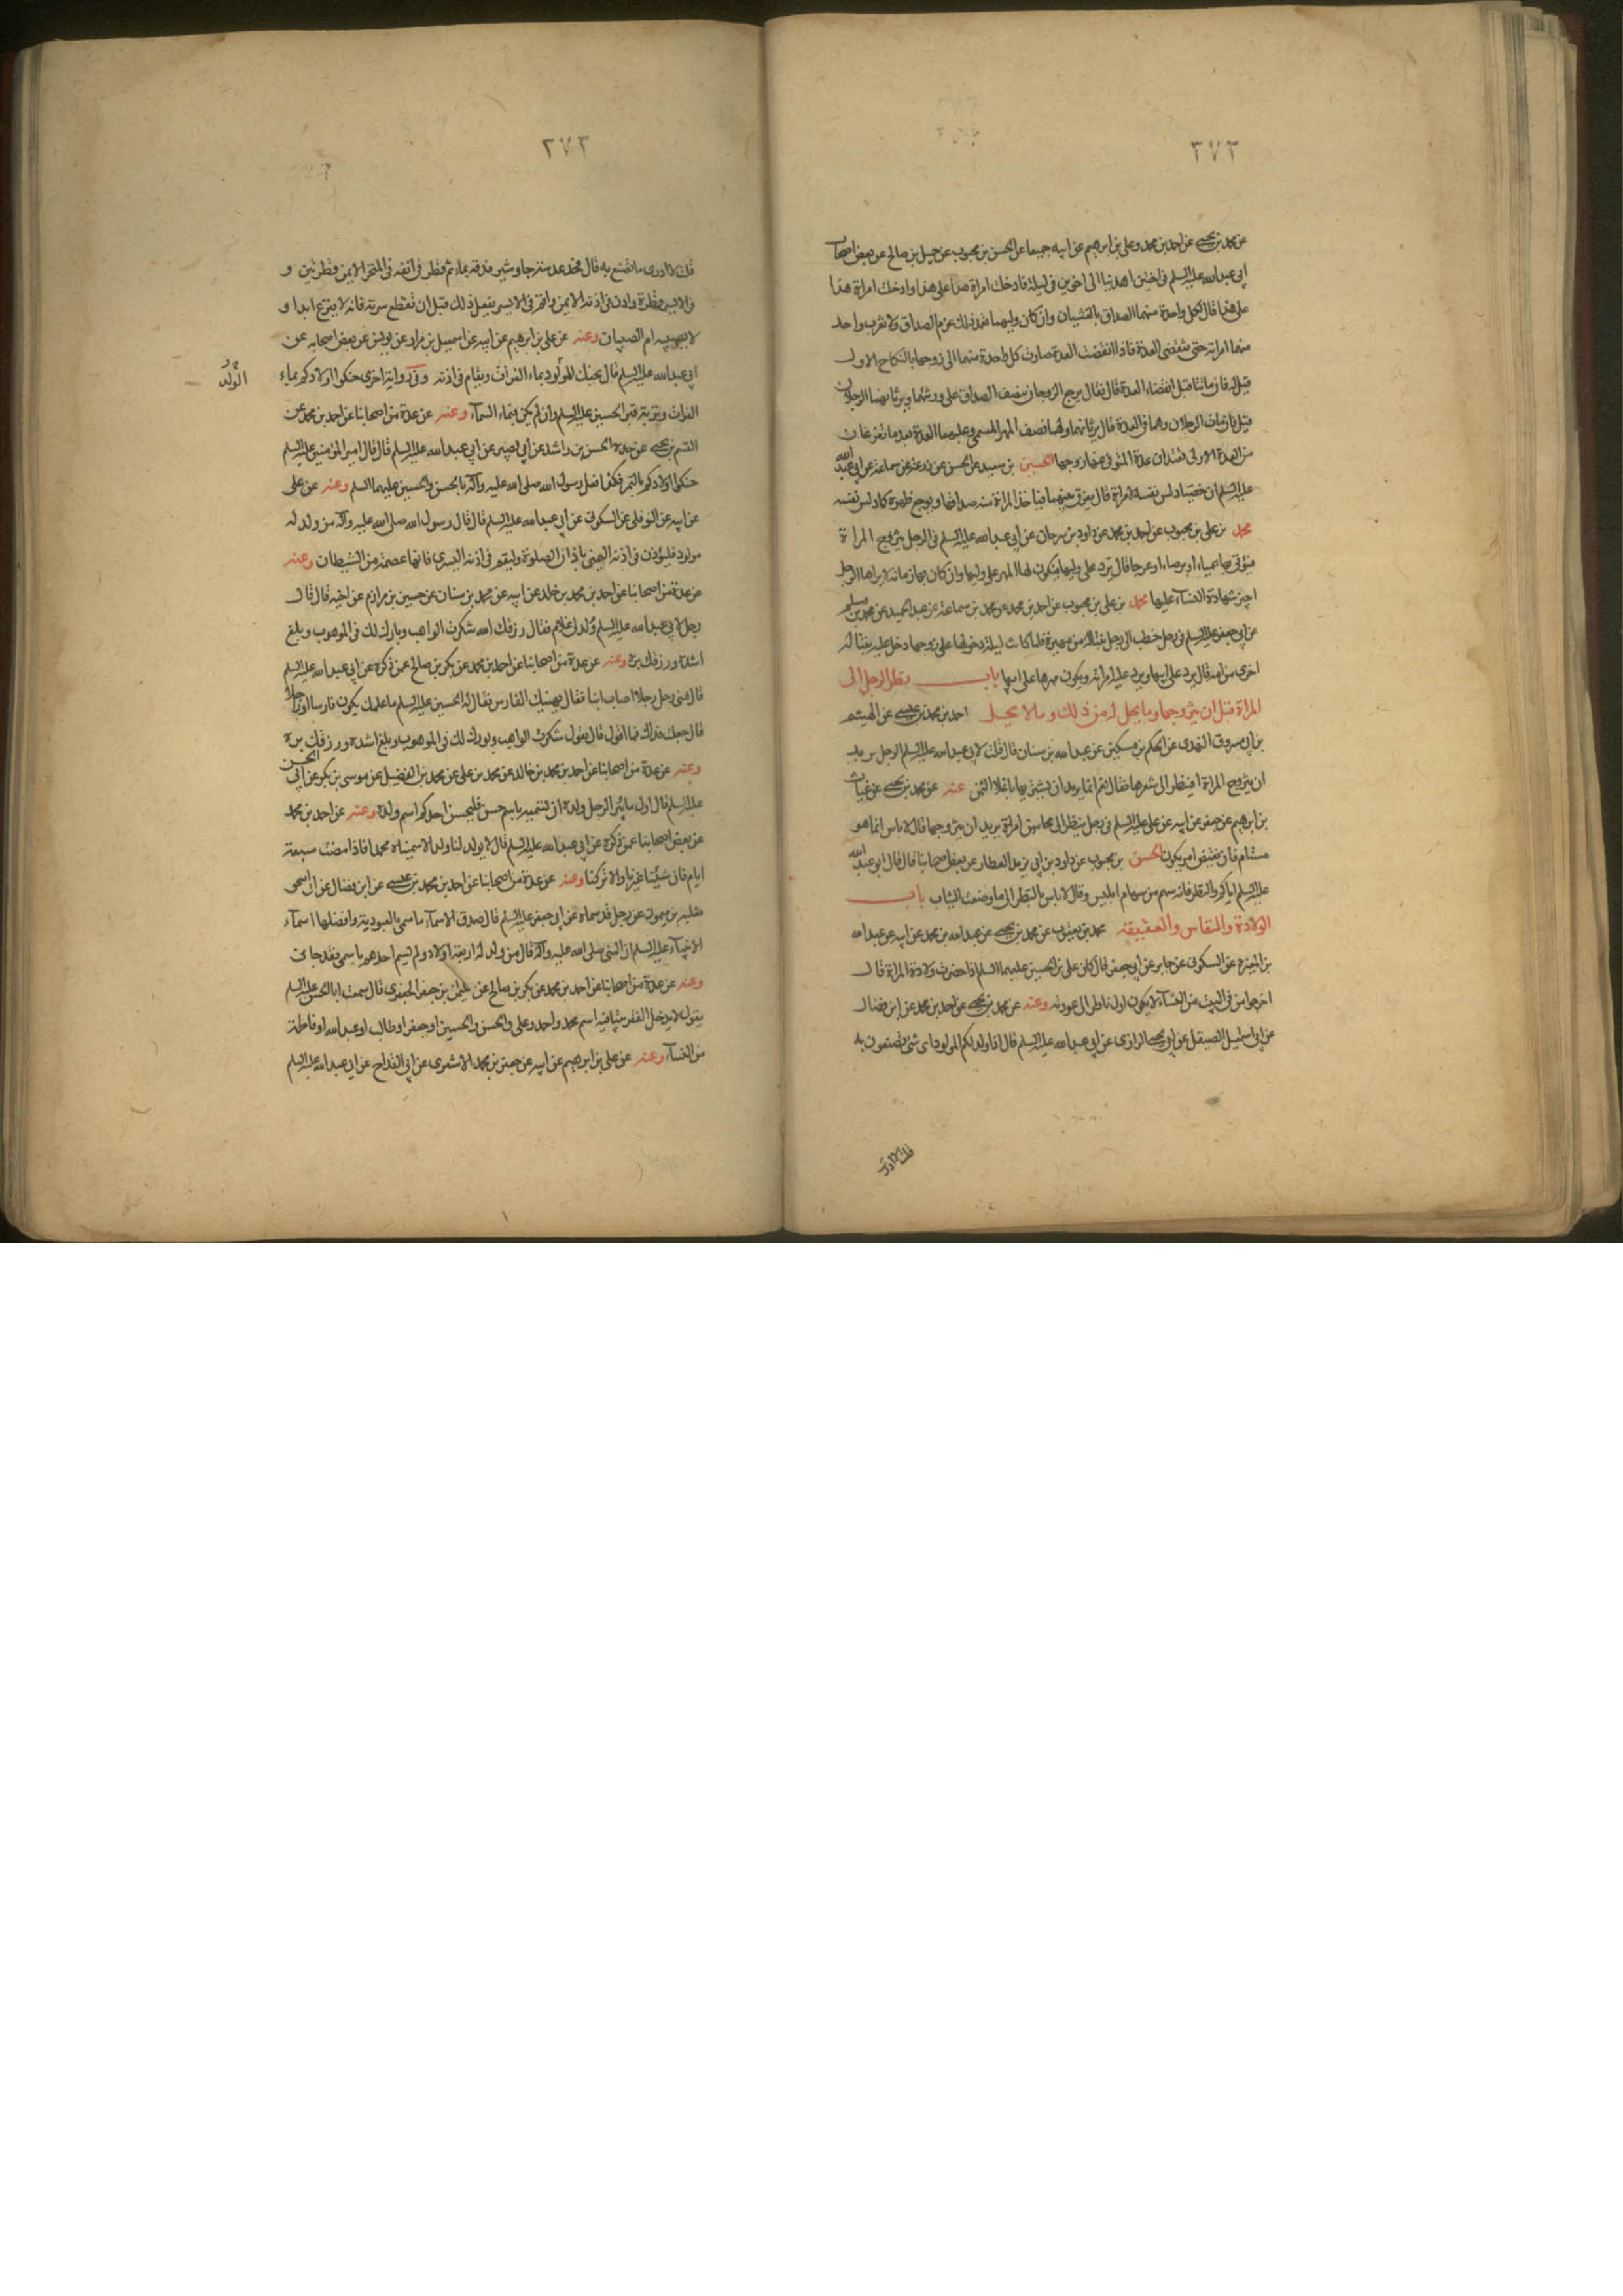 ٣٧٢
عن محمد بن يحيى عن احمد بن محمد وعلى بن ابرهيم عن ابيه جميعا عن الحسن بن محبوب عن جميل بن صالح عن بعض اصحاب
ابى عبد الله عليه السلم فى اختين اهديتا الى اخوين فى ليلة فادخلت امراة هذا على هذا وادخلت امراة هذا
على هذا قال لكل واحدة منهما الصداق بالغشيان وان كان وليهما تعمد ذلك غرم الصداق ولا يقرب واحد
منهما امراته حتى تنقضى العدة فاذا انقضت العدة صارت كل واحدة منهما الى زوجها بالنكاح الاول
قيل له فان ماتتا قبل انقضاء العدة قال فقال يرجع الزوجان بنصف الصداق على ورثتهما ويرثانهما الرجلان
قيل فان مات الرجلان وهما فى العدة قال يرثانهما ولهما نصف المهر المسمى وعليهما العدة بعد ما تفرغان
من العدة الاولى تعتدان عدة المتوفى عنها زوجها الحسين بن سعيد عن الحسن عن زرعة عن سماعة عن ابى عبد الله
عليه السلم ان خصيا دلس نفسه لامراة قال يفرق بينهما وتاخذ المراة منه صداقها ويوجع ظهره كما دلس نفسه
محمد بن على بن محبوب عن احمد بن محمد عن داود بن سرحان عن ابى عبد الله عليه السلم فى الرجل يتزوج المراة
فيؤتى بها عمياء او برصاء او عرجا قال ترد على وليها ويكون لها المهر على وليها وان كان بها زمانة لا يراها الرجل
اجيز شهادة النساء عليها محمد بن على بن محبوب عن احمد بن محمد عن محمد بن سماعة عن عبد الحميد عن محمد بن مسلم
عن ابى جعفر عليه السلم فى رجل خطب الى رجل بنتا له من مهيرة فلما كانت ليلة دخولها على زوجها دخل عليه بنتا له
اخرى من امة قال يرد على ابيها ويرد عليه امراته ويكون مهرها على ابيها باب نظر الرجل الى
المراة قبل ان يتزوجها وما يحل له من ذلك وما لا يحل احمد بن محمد بن عيسى عن الهيثم
بن ابى مسروق النهدى عن الحكم بن مسكين عن عبد الله بن سنان قال قلت لابى عبد الله عليه السلم الرجل يريد
ان يتزوج المراة اينظر الى شعرها فقال نعم انما يريد ان يشتريها باغلا الثمن عنه عن محمد بن يحيى عن غياث
بن ابرهيم عن جعفر عن ابيه عن على عليه السلم فى رجل ينظر الى محاسن امراة يريد ان يتزوجها قال لا باس انما هو
مستام فان يقض امر يكون الحسن بن محبوب عن داود بن ابى يزيد العطار عن بعض اصحابنا قال قال ابو عبد الله
عليه السلم اياكم والنظر فانه سهم من سهام ابليس وقال لا باس بالنظر الى ما وصفت الثياب باب
الولادة والنفاس والعقيقة محمد بن يعقوب عن محمد بن يحيى عن عبد الله بن محمد عن ابيه عن عبد الله
بن المغيرة عن السكونى عن جابر عن ابى جعفر قال كان على بن الحسين عليهما السلم اذا حضرت ولادة المراة قال
اخرجوا من فى البيت من النساء لا يكون اول ناظر الى عورته وعنه عن محمد بن يحيى عن احمد بن محمد عن ابن فضال
عن ابى اسمعيل الصيقل عن ابى يحيى الرازى عن ابى عبد الله عليه السلم قال اذا ولد لكم المولود اى شىء تصنعون به
قلت لا ادرى
٣٧٣
قلت لا ادرى ما نصنع به قال فخذ عدسة جاوشير فدقه بماء ثم قطر فى انفه فى المنخر الايمن قطرتين و
فى الايسر قطرة واذن فى اذنه الايمن واقم فى الايسر يفعل ذلك قبل ان تقطع سرته فانه لا يفزع ابدا و
لا يصيبه ام الصبيان وعنه عن على بن ابرهيم عن ابيه عن اسمعيل بن مرار عن يونس عن بعض اصحابه عن
ابى عبد الله عليه السلم قال يحنك المولود بماء الفرات ويقام فى اذنه وفى رواية اخرى حنكوا اولادكم بماء
الولد
الفرات وبتربة قبر الحسين عليه السلم وان لم يكن فبماء السماء وعنه عن عدة من اصحابنا عن احمد بن محمد عن
القسم بن يحيى عن جده الحسن بن راشد عن ابى بصير عن ابى عبد الله عليه السلم قال قال امير المؤمنين عليه السلم
حنكوا اولادكم بالتمر فكذا فعل رسول الله صلى الله عليه وآله بالحسن والحسين عليهما السلم وعنه عن على
عن ابيه عن النوفلى عن السكونى عن ابى عبد الله عليه السلم قال قال رسول الله صلى الله عليه وآله من ولد له
مولود فليؤذن فى اذنه اليمنى باذان الصلوة وليقم فى اذنه اليسرى فانها عصمة من الشيطان وعنه
عن عدة من اصحابنا عن احمد بن محمد بن خلد عن ابيه عن محمد بن سنان عن حسين بن مرازم عن اخيه قال قال
رجل لابى عبد الله عليه السلم ولد لى غلام فقال رزقك الله شكرت الواهب وبارك لك فى الموهوب وبلغ
اشده ورزقك بره وعنه عن عدة من اصحابنا عن احمد بن محمد عن بكر بن صالح عمن ذكره عن ابى عبد الله عليه السلم
قال هنى رجل رجلا اصاب ابنا فقال يهنيك الفارس فقال له الحسين عليه السلم ما علمك يكون فارسا او راجلا
قال جعلت فداك فما اقول قال تقول شكرت الواهب وبورك لك فى الموهوب وبلغ اشده ورزقك بره
وعنه عن عدة من اصحابنا عن احمد بن محمد بن خالد عن محمد بن على عن محمد بن الفضيل عن موسى بن بكر عن ابى الحسن
عليه السلم قال اول ما يبر الرجل ولده ان يسميه باسم حسن فليحسن احدكم اسم ولده وعنه عن احمد بن محمد
عن بعض اصحابنا عمن ذكره عن ابى عبد الله عليه السلم قال لا يولد لنا ولد الا سميناه محمدا فاذا مضت سبعة
ايام فان شئنا غيرنا والا تركنا وعنه عن عدة من اصحابنا عن احمد بن محمد بن عيسى عن ابن فضال عن ابى اسحق
ثعلبة بن ميمون عن رجل قد سماه عن ابى جعفر عليه السلم قال اصدق الاسماء ما سمى بالعبودية وافضلها اسماء
الانبياء عليه السلم ان النبى صلى الله عليه وآله قال من ولد له اربعة اولاد ولم يسم احدهم باسمى فقد جفانى
وعنه عن عدة من اصحابنا عن احمد بن محمد عن بكر بن صالح عن سليمن بن جعفر الجعفرى قال سمعت ابا الحسن عليه السلم
يقول لا يدخل الفقر بيتا فيه اسم محمد واحمد وعلى والحسن والحسين او جعفر او طالب او عبد الله او فاطمة
من النساء وعنه عن على بن ابرهيم عن ابيه عن جعفر بن محمد الاشعرى عن ابى القداح عن ابى عبد الله عليه السلم